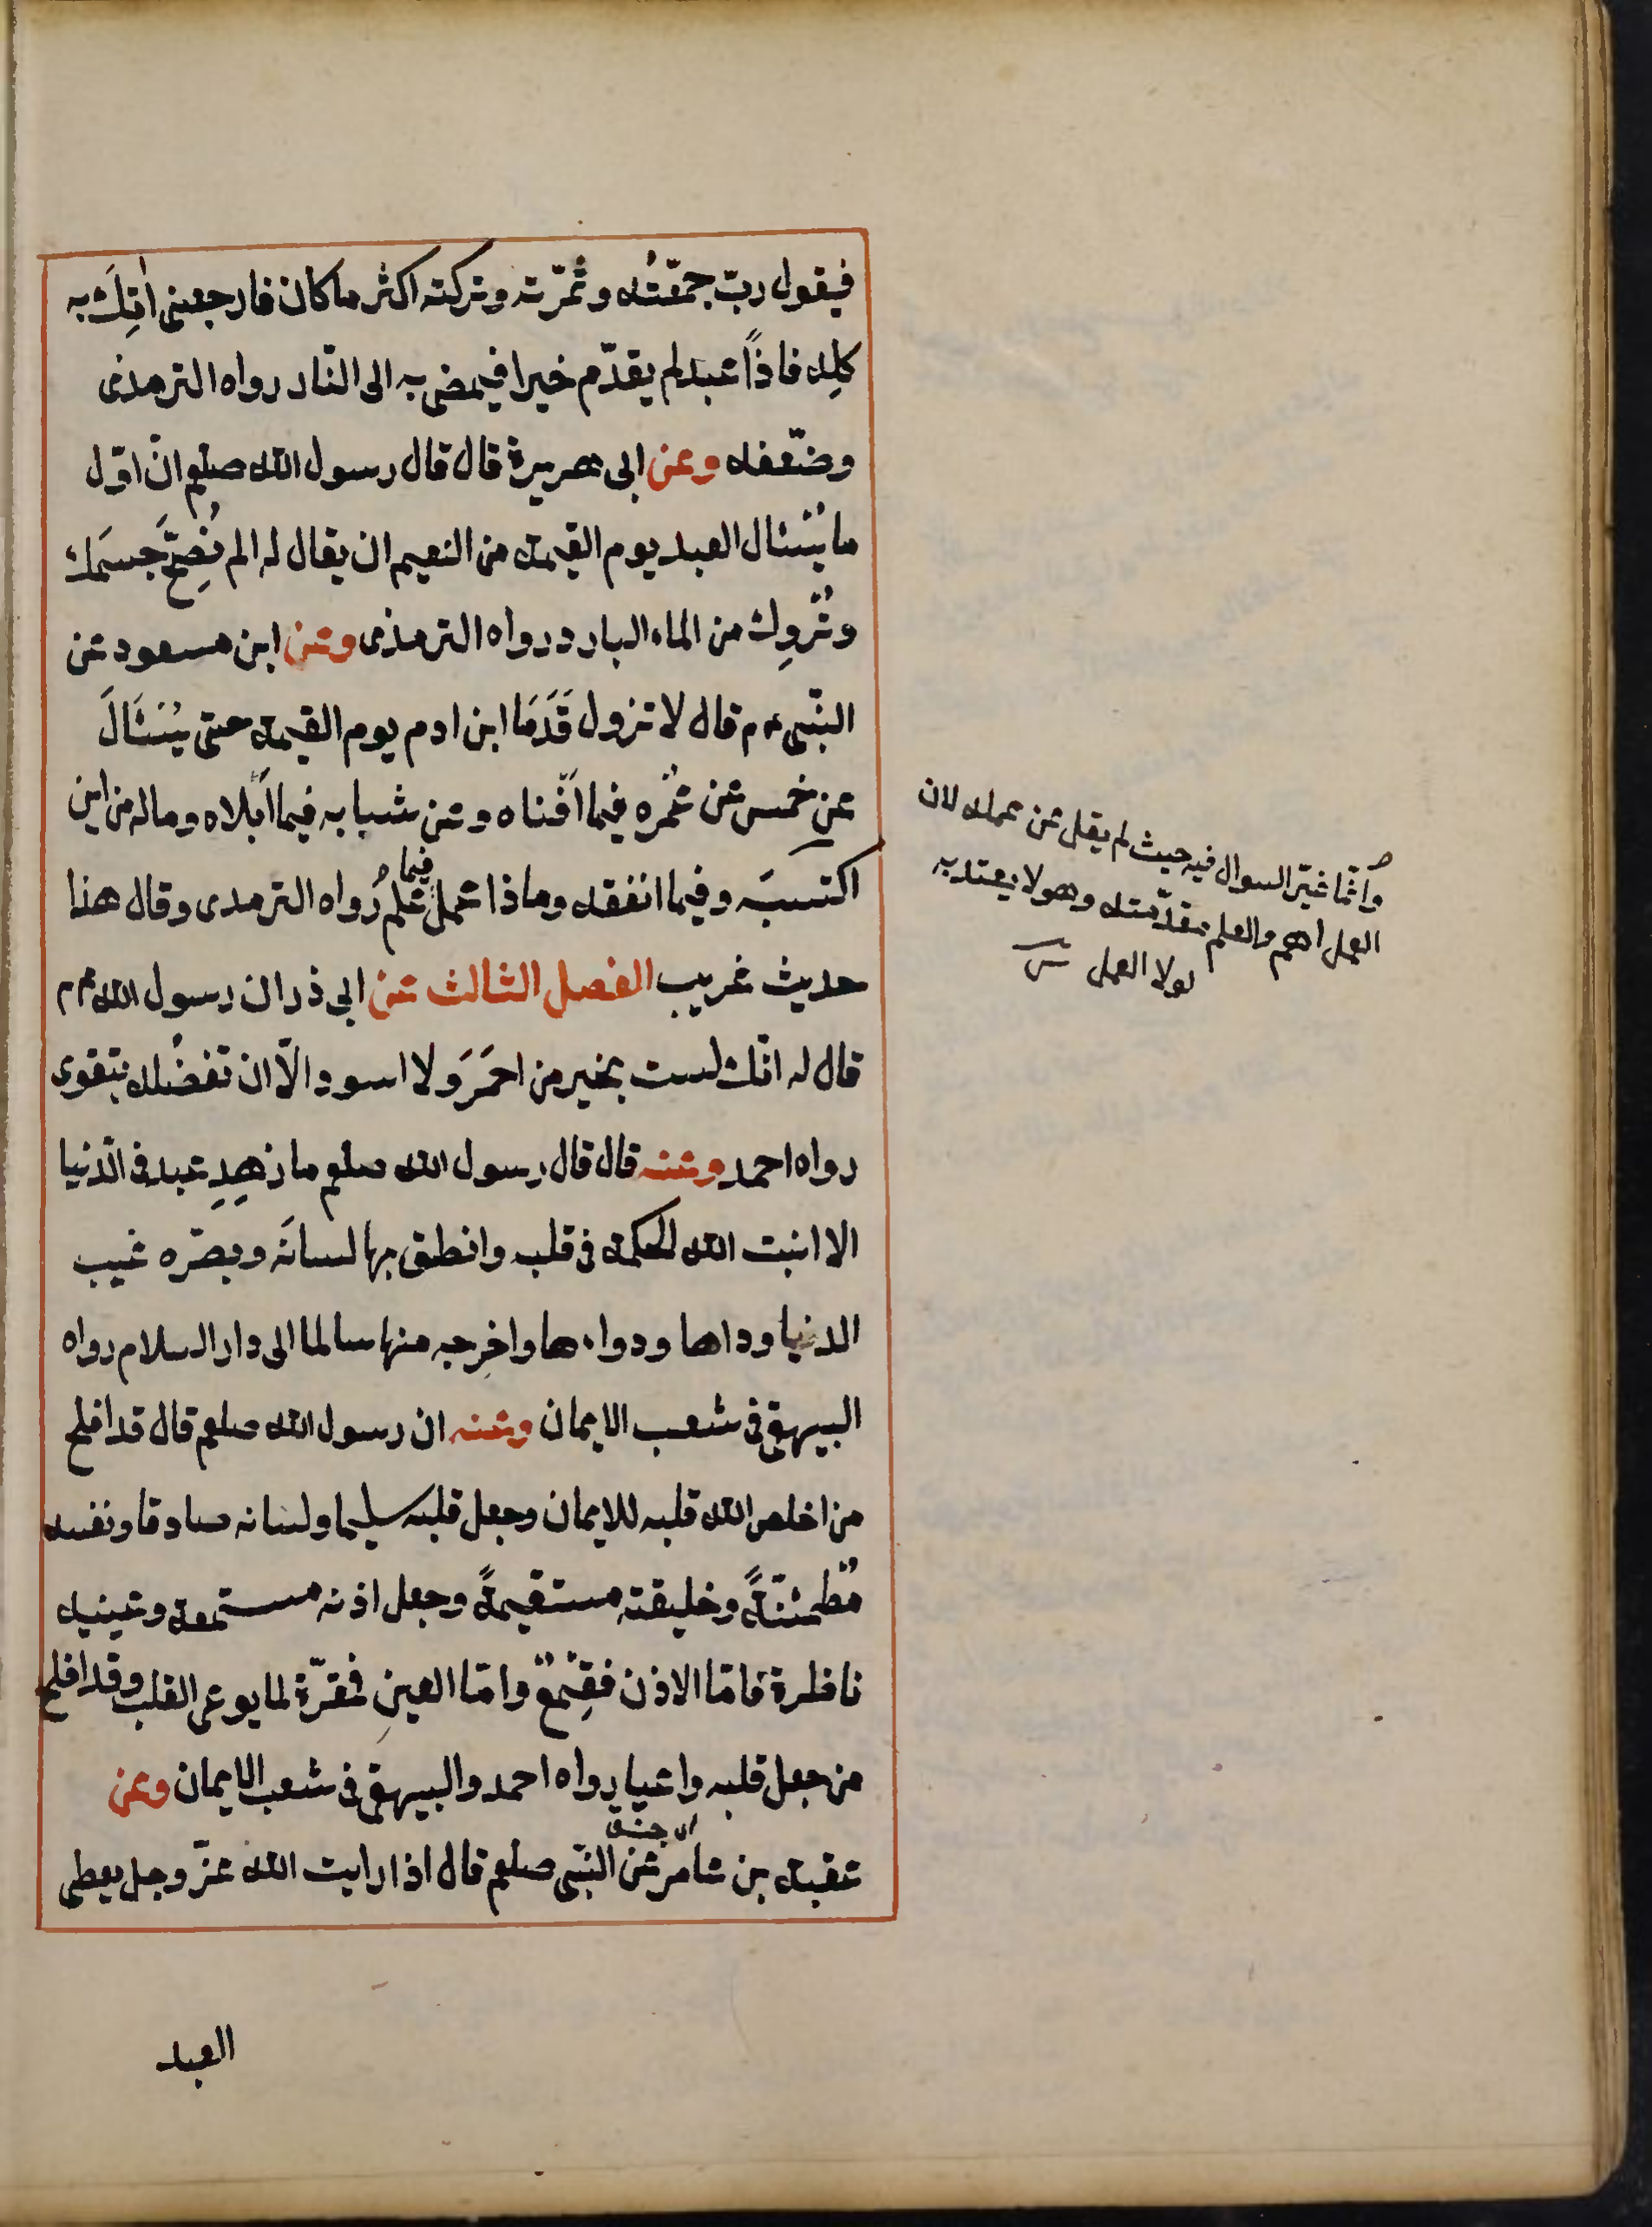 فيقول ربّ جمّعتُه وثمّرته وتركته اكثر ما كان فارجعنى اٰتِكَ به
كلِه فاذًا عبد لم يقدّم خيرا فيمضى به الى النّار رواه الترمذى
وضّعفه وعن ابى هريرة قال قال رسول الله صلعم انّ اوّل
ما يُسْئال العبد يوم القيمة من النعيم ان يقال له الم نُصِحَّ جسَمك
ونُروِك من الماء البارد رواه الترمذى وعن ابن مسعود عن
النّبى ءم قال لا تزول قَدَمَا ابن ادم يوم القيمة حتى يُسْئَالَ
عن خمس عن عُمْره فيما اَفْناه وعن شبابه فيما اَبْلاه وماله من اين
اكتسبَه وفيما انفقه وماذا عمل فيما علم رواه الترمدى وقال هذا
حديث غريب الفصل الثالث عن ابى ذر ان رسول الله ءم
قال له انّك لست بخير من احمَرَ ولا اسود الّا ان تفضُله بتقوى
رواه احمد وعنه قال قال رسول الله صلعم ما زهِدِ عبد فى الدّنيا
الا انبت الله الحكمة فى قلبه وانطق بها لسانَه وبصّره عيب
الدنيا وداها ودواءها واخرجه منها سالما الى دار السلام رواه
البيهقى فى شعب الايمان وعنه ان رسول الله صلعم قال قد افلح
من اخلص الله قلبه للايمان وجعل قلبه سليما ولسانه صادقا ونفسه
مُطْمئنّةً وخليقته مستقيمةً وجعل اذنه مستمعة وعينيه
ناظرة فامّا الاذن فقِمْعٌ وامّا العينِ فمقرّة لما يوعى القلب وقد افلح
من جعل قلبه واعيا رواه احمد والبيهقى فى شعب الايمان وعن
عقبة بن عامر عن النّبى صلعم قال اذا رايت الله عزّ وجل يعطى
العبد
وانّما غيّر السوال فيه حيث لم يقل عن عمله لان
العمل اهم والعلم مقدّمته وهو لا يعتد به
لولا العمل